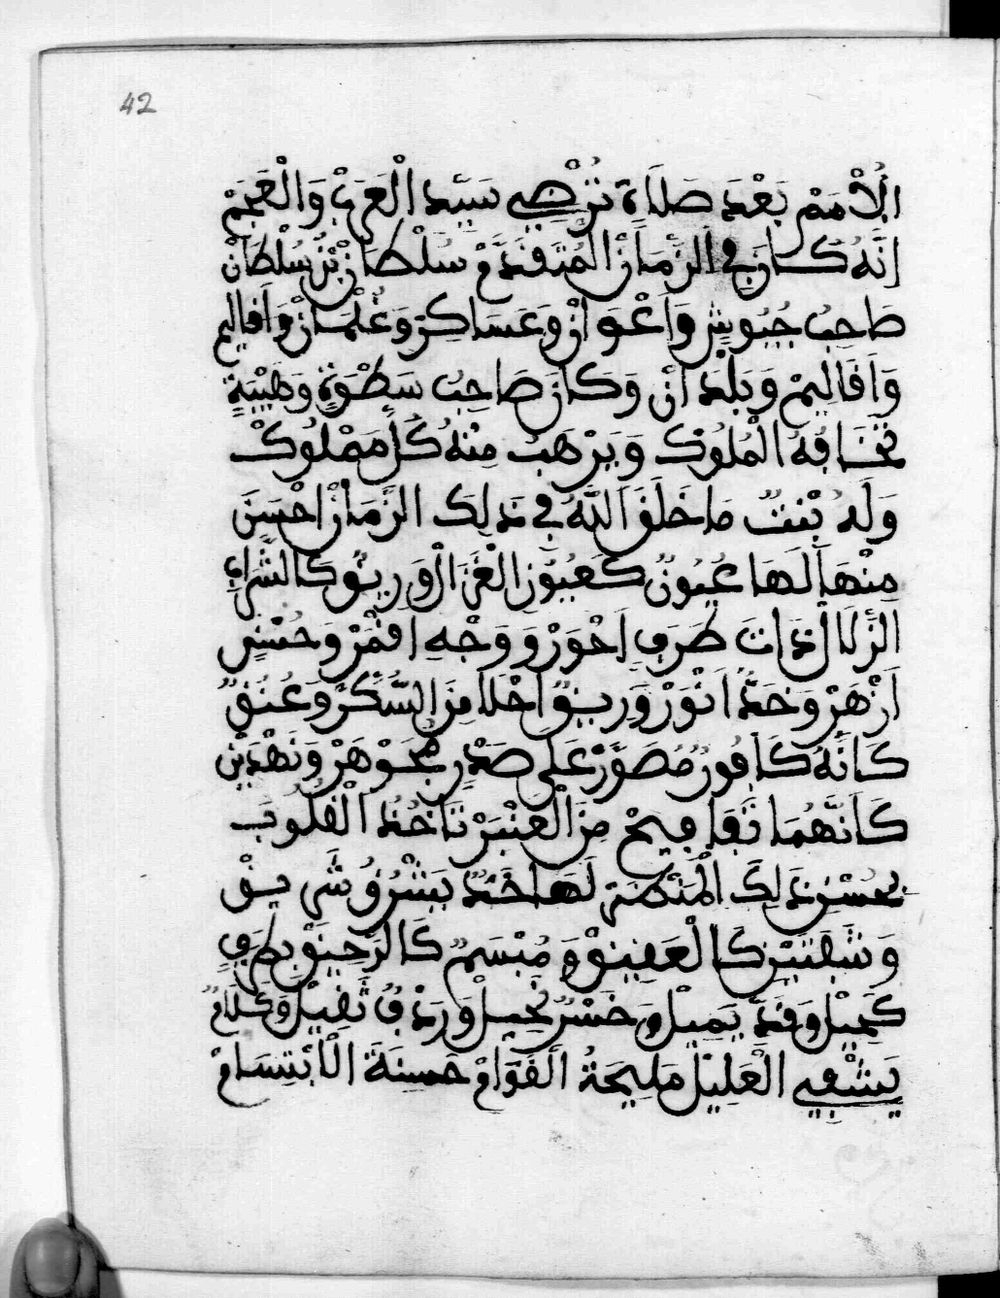 42
الْأُمَمْ بَعْدَ صَلَاةَ تُرْضِي سَيِّدِ الْعَرَبْ وَالْعَجَمْ
إِنَّهُ كَانَ فِي الزَّمَانْ الْمُتَقَدَّمْ سُلْطَانْ بْنُ سُلْطَانْ
صَاحِبُ جُيُوشٍ وَأَعْوَانْ وَعَسَاكِرْ وَغُلْمَانْ وَأَقَالِيم
وَأَقَالِيمْ وَبُلْدَانْ وَكَانَ صَاحِبُ سَطْوَةٍ وَهَيْبَةٍ
تَخَافُهُ الْمُلُوكْ وَيَرْهَبُ مِنْهُ كُلُّ مَمْلُوكْ
وَلَهُ بِنْتٌ مَا خَلَقَ اللَّهُ فِي ذَلِكَ الزَّمَانْ أَحْسَنَ
مِنْهَا لَهَا عُيُونٌ كَعُيُونِ الْغَزَالْ وَرِيقٌ كَالشَّرَابِ
الزُّلَالْ ذَاتَ طَرْفٍ أَحْوَرْ وَوَجْهٍ أَقْمَرْ وَحُسْنٍ
أَزْهَرْ وَخَدٌّ أَنْوَرْ وَرِيقٌ أَحْلَا مِنَ السُّكَّرْ وَعُنُقٌ
كَأَنَّهُ كَافُورٌ مُصَوَّرْ عَلَى صَدْرٍ مُجَوْهَرْ وَنَهْدَيْنِ
كَأَنَّهُمَا تَفَافِيحْ مِنَ الْعَنْبَرْ تَأْخُذُ الْقُلُوبَ
بِحُسْنِ ذَلِكَ الْمَنْظَرْ لَهَا خَدٌّ يَشْرُقُ شَرِيقْ
وَشَفَتَيْنِ كَالْعَقِيقْ وَمُبْسَمٌ كَالرَّحِيقْ بِطَرْفٍ
كَحِيلْ وَقَدٌّ يَمِيلْ وَخَصْرٌ نَحِيلْ وَرِدْفٌ ثَقِيلْ وَكَلَامٌ
يَشْفِي الْعَلِيلْ مَلِيحَةُ الْقَوَامْ حَسِنَةَ الْاِبْتِسَامْ